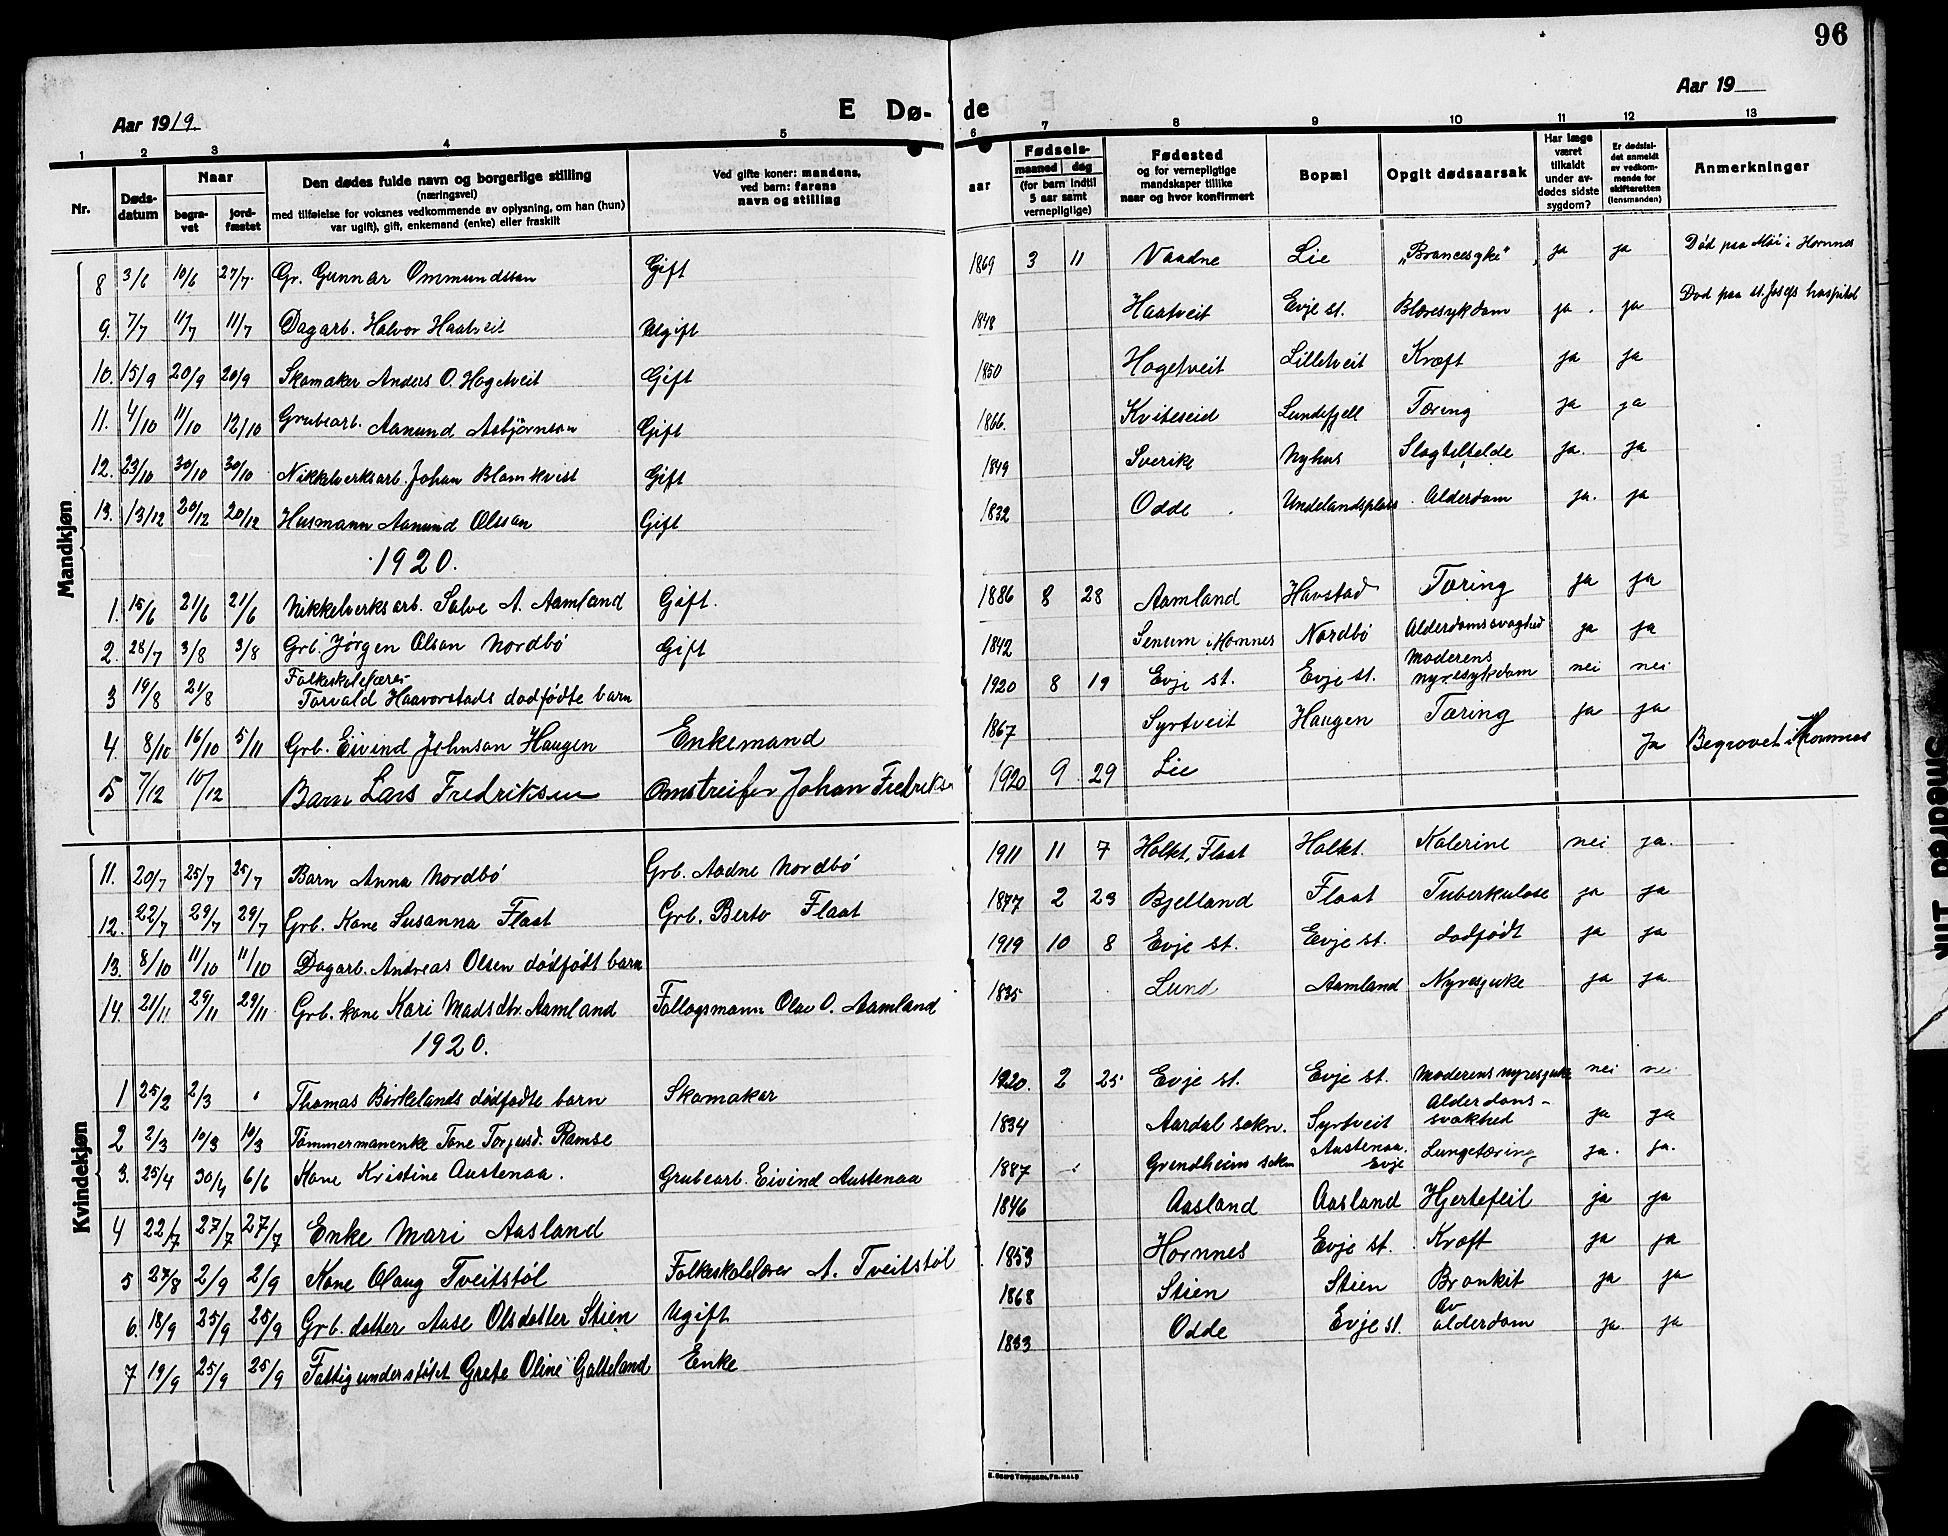 96
Aar 1919.
E Dø- de
Aar 19
1 2 3 4 5 6 7 8 9 10 11 12 13
Nr.
Døds-datum
Naar
begra-vet
jord-fæstet
Den dødes fulde navn og borgerlige stilling
(næringsvei)
med tilføielse for voksnes vedkommende av oplysning, om han (hun)
var ugift), gift, enkemand (enke) eller fraskilt
Ved gifte koner: mandens,
ved barn: farens
navn og stilling
Fødsels-
aar
maaned dag
(for barn indtil
5 aar samt
vernepligtige)
Fødested
og for vernepligtige
mandskaper tillike
naar og hvor konfirmert
Bopæl
Opgit dødsaarsak
Har læge
været
tilkaldt
under av-
dødes sidste
sygdom?
Er dødsfal-
det anmeldt
av vedkom-
mende for
skifteretten
(lensmanden)
Anmerkninger
Mandkjøn
8 3/6 10/6 27/7 Gr. Gunnar Ommundsson Gift 1869 3 11 Vaadne Lie „Brancesyke“ ja ja Død paa Moi i Hornnes
9. 7/7 11/7 11/7 Dagarb. Halvor Haatveit Ugift 1848 Haatveit Evje st. Blæresykdom ja. ja Død paa st. Josefs hospital
10. 15/9 20/9 20/9 Skomaker Anders O. Hogetveit Gift 1850 Hogetveit Lilletveit Kræft ja ja
11. 4/10 11/10 12/10 Grubearb. Aanund Asbjørnson Gift 1866. Kviteseid Lundefjell Tæring ja ja
12. 23/10 30/10 30/10 Nikkelverksarb. Johan Blomkvist Gift 1849 Sverike Nyhus Slagtilfelde ja. ja
13. 13/12 20/12 20/12 Husmann Aanund Olsson Gift 1832 Odde Undelandsplass Alderdom ja. ja
1920.
1. 15/6 21/6 21/6 Nikkelverksarb. Salve A. Aamland Gift. 1886 8 28 Aamland Havstad Tæring ja ja
2. 28/7 3/8 3/8 Grb. Jørgen Olson Nordbø Gift 1842 Senum, Hornnes Nordbø Alderdomssvaghed ja ja
3 19/8 21/8 Folkeskolelærer Torvald Haavorstads dødfødte barn 1920 8 19 Evje st. Evje st. Moderens nyresykdom nei nei
4. 8/10 16/10 5/11 Grb. Eivind Johnson Haugen Enkemand 1867 Syrtveit Haugen Tæring ja ja
5 7/12 10/12 Barn Lars Fredriksen Omstreifer Johan Fredriks 1920 9 29 Lie Ja Begravet i Hornnes
Kvindekjøn
11. 20/7 25/7 25/7 Barn Anna Nordbø Grb. Aadne Nordbø 1911 11 7 Holkt, Flaat Holkt. Kolerine nei ja.
12. 22/7 29/7 29/7 Grb. Kone Susanna Flaat Grb. Berto Flaat 1877 2 23 Bjelland Flaat Tuberkulose ja ja
13. 8/10 11/10 11/10 Dagarb. Andreas Olsen dødfødt barn 1919 10 8 Evje st. Evje st. dødfødt ja ja
14. 21/11 29/11 29/11 Grb. kone Kari Madsdtr. Aamland Follogsmann Olav O. Aamland 1835 Lund Aamland Nyresjuke ja ja
1920.
1 25/2 2/3 Thomas Birkelands dødfødte barn Skomaker 1920. 2 25 Evje st. Evje st. Moderens nyresjuke nei nei
2 2/3 10/3 10/3 Tømmermanenke Tone Torjusd. Ramse 1834 Aardal sokn. Syrtveit Alderdoms-svakhed ja ja
3. 25/4 30/4 6/6 Kone Kristine Austenaa. Grubearb. Eivind Austenaa 1887 Grendheim sokn Austenaa. Evje Lungetæring ja. ja.
4 22/7 27/7 27/7 Enke Mari Aasland 1846 Aasland Aasland Hjertefeil ja ja
5 27/8 2/9 2/9 Kone Olaug Tveitstøl Folkeskolelærer A. Tveitstøl 1853 Hornnes Evje st. Kræft ja ja
6. 18/9 25/9 25/9 Grb. datter Aase Olsdatter Stien Ugift 1868 Stien Stien Bronkit ja ja
7 19/9 25/9 25/9 Fattigunderstøtet Grete Oline Galteland Enke 1833 Odde Evje st. Av alderdom ja ja